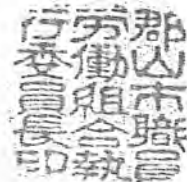 郡山市職員
労働組合執
行委員長印